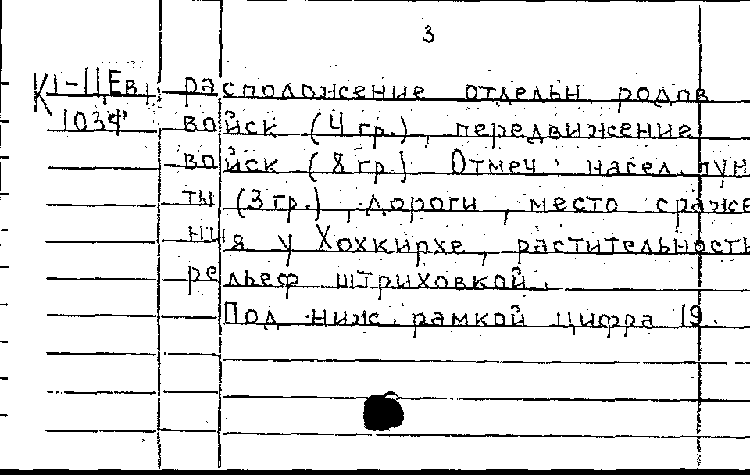 3
К1-ЦЕв. расположение отдельн родов
1034 войск (4 гр.), передвижение
войск (8 гр.) Отмеч. насел. пун
ты (3 гр.), дороги, место сраже
ния у Хохкирхе, растительность
рельеф штриховкой.
Под ниж. рамкой цифра 19.